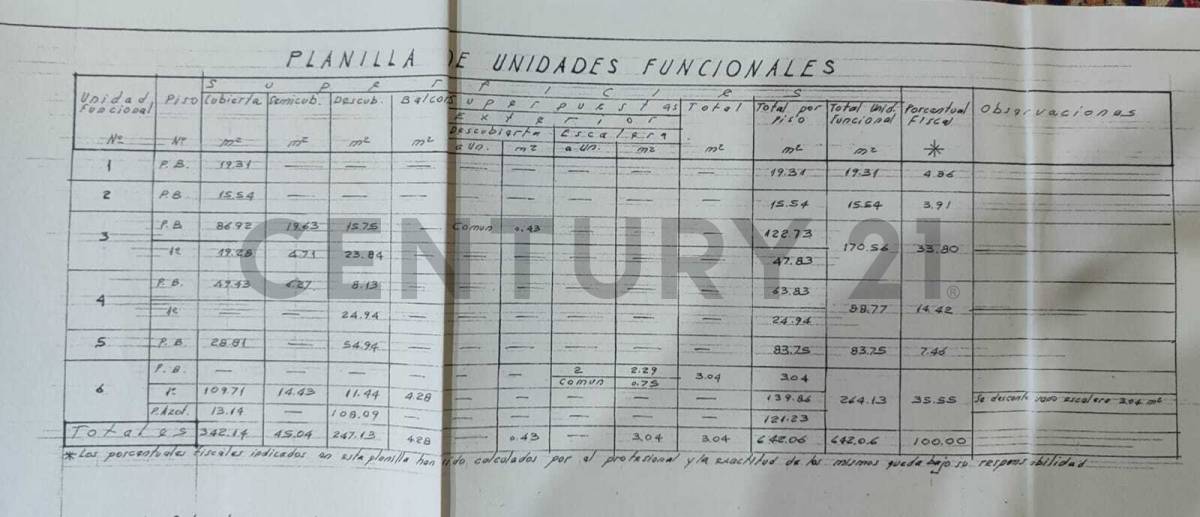 PLANILLA DE UNIDADES FUNCIONALES
Superficies
Unidad Funcional Piso Cubierta Semicub. Descub. Balcon Superpuestas Total Total por Piso Total Unid. funcional Porcentual Fiscal Observaciones
Exterior
Descubierta Escalera
Nº Nº m² m² m² m² a Un. m² a Un. m² m² m² m² *
1 P.B. 19.31 — — — — — — — — 19.31 19.31 4.86
2 P.B 15.54 — — — — — — — — 15.54 15.54 3.91
3 P.B 86.92 19.63 15.75 Comun 0.43 122.73
1º 19.28 4.71 23.84 — — — — — — 47.83 170.56 33.80
4 P.B. 49.43 6.27 8.13 — — — — — — 63.83
1º — — 24.94 — — — — — — 24.94 88.77 14.42
5 P.B. 28.81 — 54.94 — — — — — — 83.75 83.75 7.46
6 P.B. — — — — — — 2 2.29 3.04 3.04
Comun 0.75
1º 109.71 14.43 11.44 4.28 — — — — — 139.86 264.13 35.55 Se desconto vacio escalera 3.04 m²
P.Azot. 13.14 — 108.09 — — — — — — 121.23
Totales 342.14 45.04 247.13 4.28 — 0.43 — 3.04 3.04 642.06 642.06 100.00
* Los porcentuales fiscales indicados en esta planilla han sido calculados por el profesional y la exactitud de los mismos queda bajo su responsabilidad
CENTURY 21®